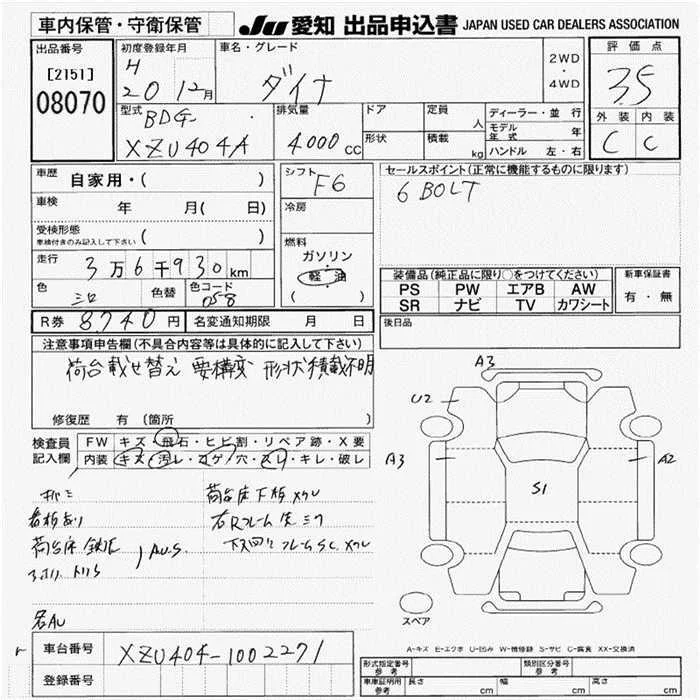 車内保管・守衛保管 JU 愛知 出品申込書 JAPAN USED CAR DEALERS ASSOCIATION
出品番号 初度登録年月 車名・グレード 評価点
[2151] H 2WD
08070 20 12月 ダイナ ・ 4WD 3.5
型式 排気量 ドア 定員 ディーラー・並 行 外装 内装
BDG- 人 モデル年式 年 C C
XZU404A 4000CC 形状 積載 kg ハンドル 左・右
車歴 自家用・( ) シフト F6 セールスポイント(正常に機能するものに限ります)
車検 年 月( 日) 冷房 6 BOLT
受検形態
車検付きのみ記入して下さい ( )
燃料
走行 3万6千930km ガソリン
軽・油
( )
装備品(純正品に限り○をつけてください) 新車保証書
色 色替 色コード PS PW エアB AW 有・無
058 SR ナビ TV カワシート
R券 8,740円 名変通知期限 月 日 後日品
注意事項申告欄(不具合内容等は具体的に記入して下さい)
荷台載せ替え 要構変 形状積載不明
修復歴 有 (箇所 )
検査員 FW キズ・飛石・ヒビ割・リペア跡・X要
記入欄 内装 キズ・汚レ・コゲ・穴・スレ・キレ・破レ
A3
U2
A3 A2
S1
荷台床下板 メクレ
看板あり
荷台床 鉄板
スペア
A-キズ E-エクボ U-凹み W-補修跡 S-サビ C-腐食 XX-交換済
車台番号 XZU404-1002271
登録番号
形式指定番号 参考 類別区分番号 参考
車庫証明用 参考 長さ cm 幅 cm 高さ cm